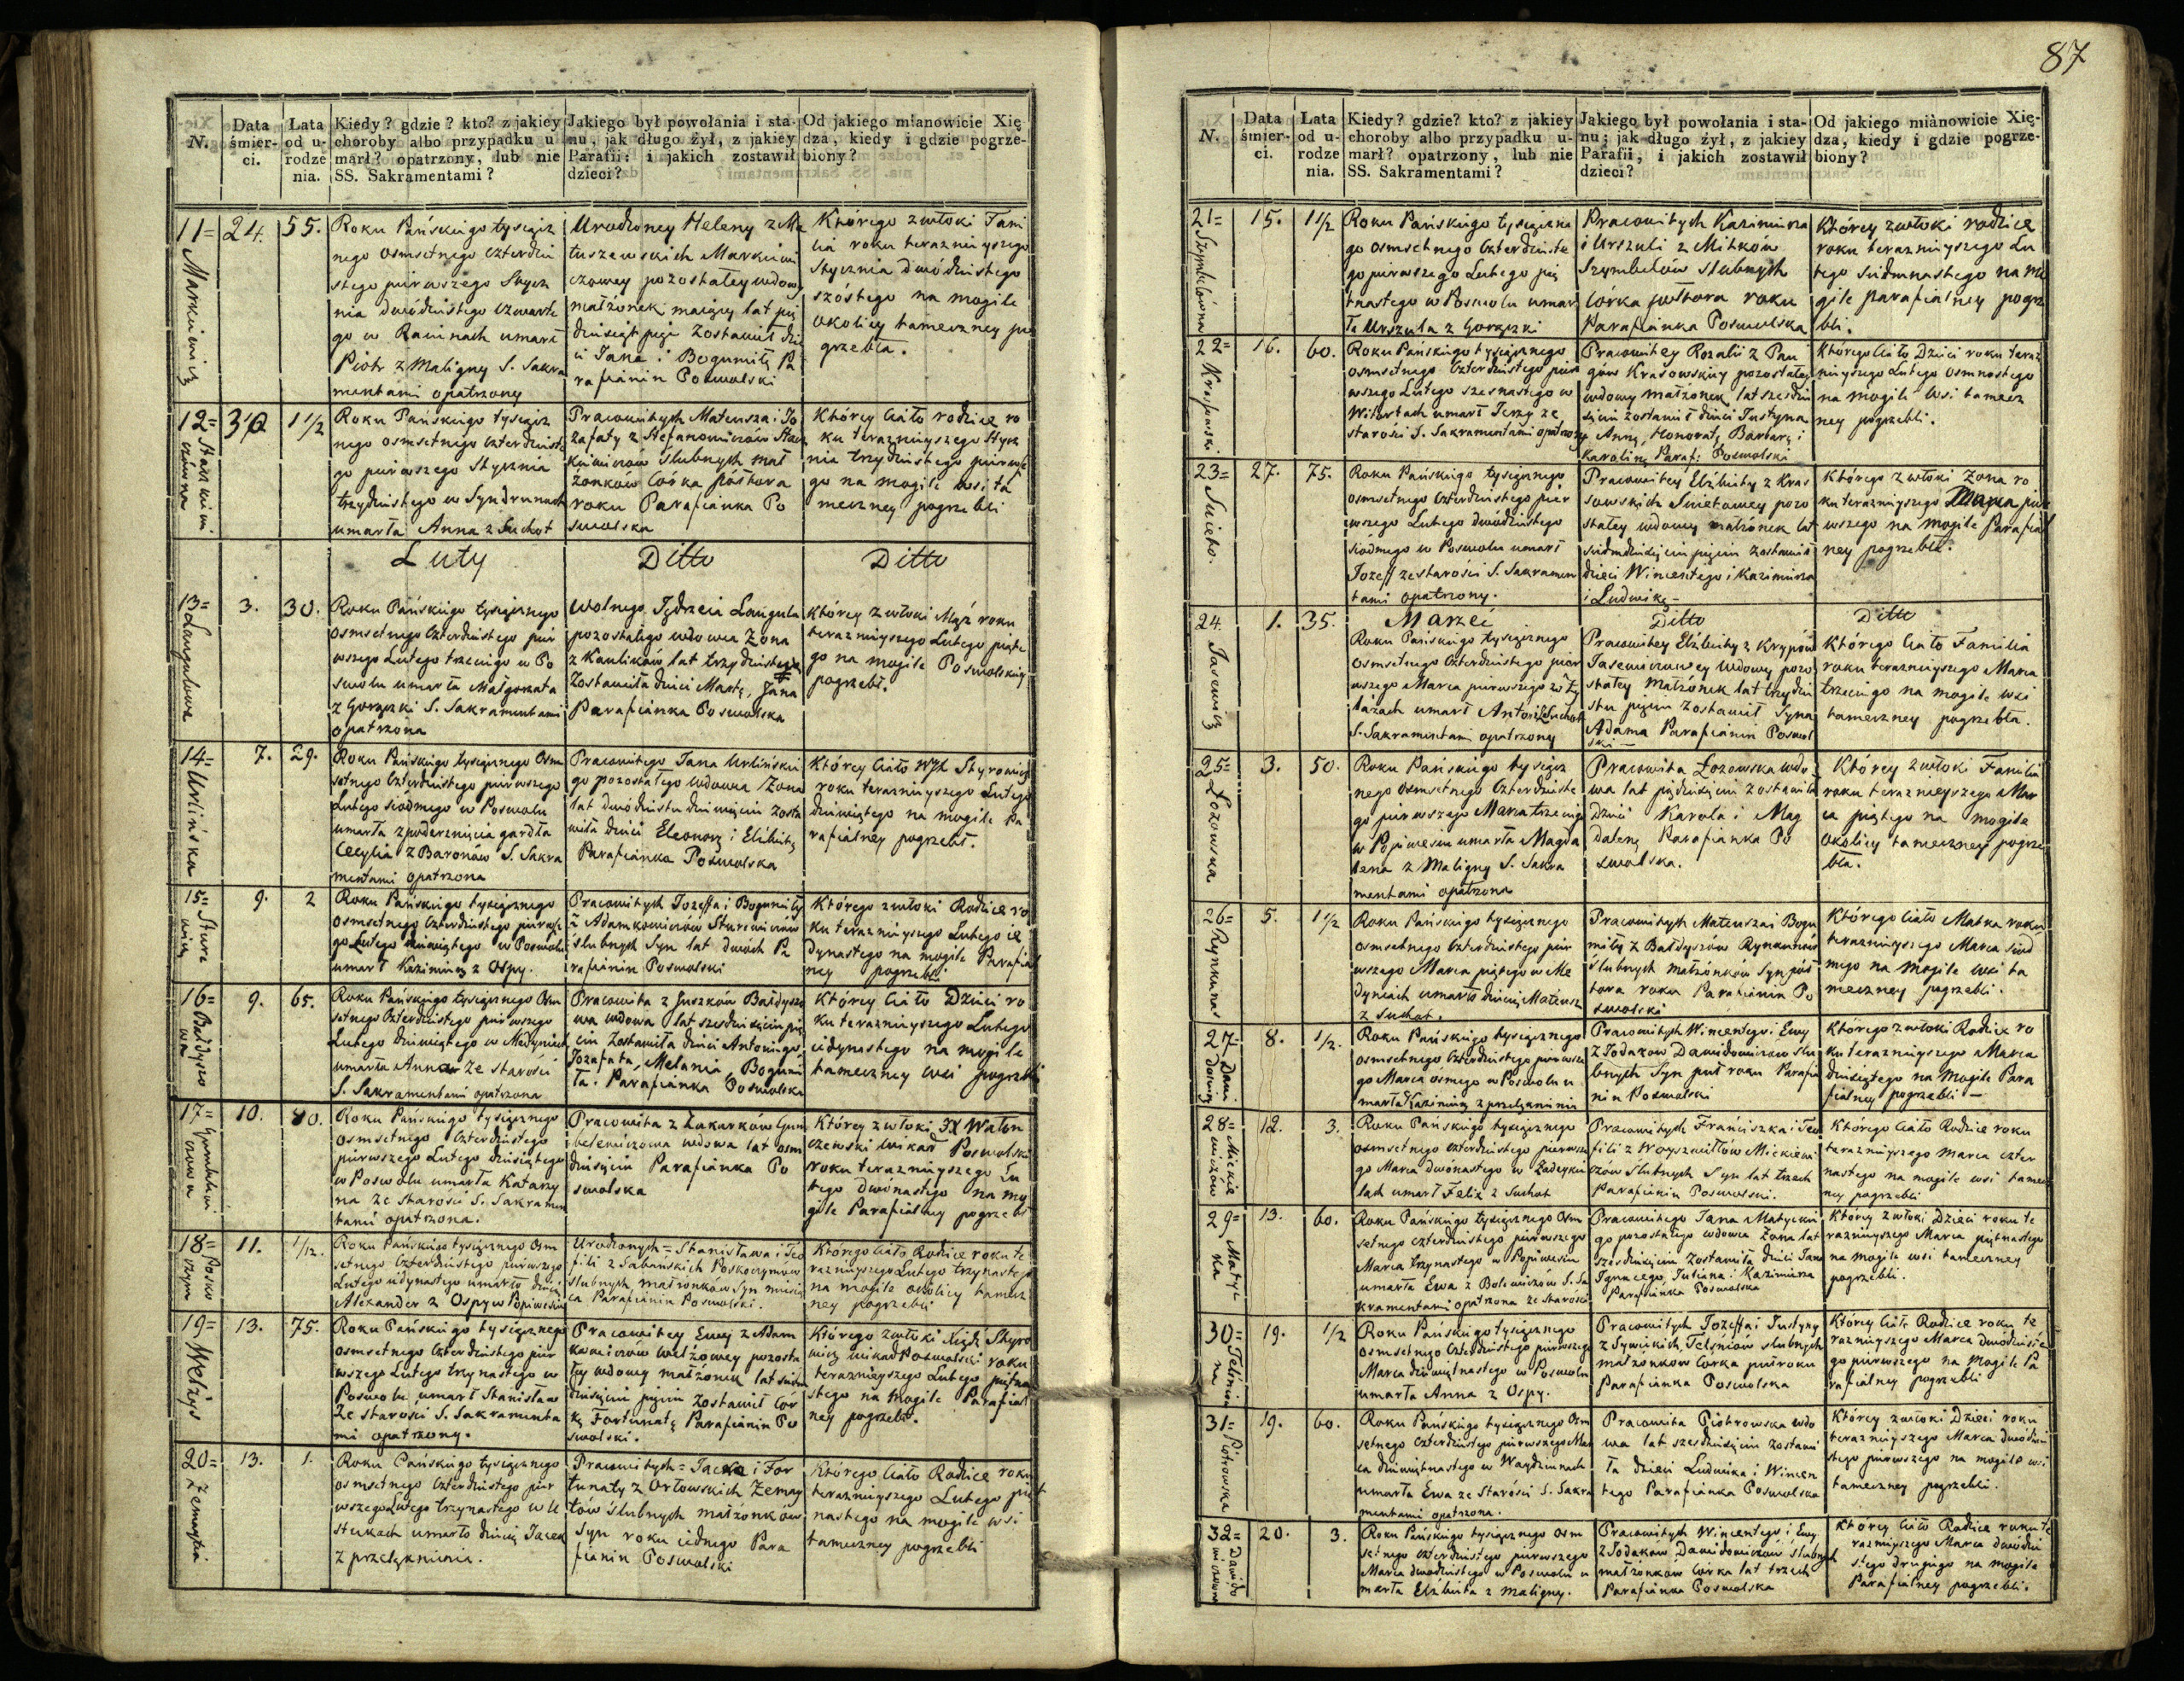 87
N.
Data śmier- ci.
Lata od u- rodze nia.
Kiedy? gdzie? kto? z jakiey
choroby albo przypadku u-
marł? opatrzony, lub nie
SS. Sakramentami?
Jakiego był powołania i sta-
nu, jak długo żył, z jakiey
Parafii: i jakich zostawił
dzieci?
Od jakiego mianowicie Xię
dza, kiedy i gdzie pogrze-
biony?
11= Markiewicz
24.
55.
Roku Pańskiego tysiącz
nego osmsetnego czterdzie
stego pierwszego Stycz
nia dwódziestego czwarte
go w Rawinach umarł
Piotr z Maligny S. Sakra
mentami opatrzony
Urodzoney Heleny z Ma
tuszewskich Markiewi
czowey pozostałey wdowy
małżonek, maiący lat pię
dziesiąt pięć zostawił dzie
ci Jana i Bogumiłę Pa
rafianin Poswolski
Którego zwłoki Fami
lia roku terazniyszego
Stycznia dwódziestego
szóstego na mogile
okolicy tameczney po
grzebła.
12=
30
1 1/2
Roku Pańskiego tysiącz
nego osmsetnego czterdzieste
go pierwszego Stycznia
trzydziestego w Syndrunach
umarła Anna z Suchot
Pracowitych Mateusza i Jo
zafaty z Stefanowiczów Stac
kiewiczów ślubnych mał
żonkow Córka półtora
roku Parafianka Po
swolska
Którey ciało rodzice ro
ku terazniyszego Stycz
nia trzydziestego pierwsze
go na mogile wsi ta
meczney pogrzebli
Luty
Ditto
Ditto
13= Laugalowa
3.
30.
Roku Pańskiego tysiącznego
osmsetnego Czterdziestego pier
wszego Lutego trzeciego w Po
swolu umarła Małgorzata
z Gorączki S. Sakramentami
opatrzona
Wolnego Jędrzeia Laugala
pozostałego wdowca Żona
z Kaulików lat trzydziestu
Zostawiła dzieci Martę, Jana
Parafianka Poswolska
Którey zwłoki Mąż roku
terazniyszego Lutego piąte
go na mogile Poswolskiey
pogrzebł.
14= Urlińska
7.
29.
Roku Pańskiego tysiącznego Osm
setnego Czterdziestego pierwszego
Lutego siódmego w Poswolu
umarła z poderznięcia gardła
Cecylia z Baronów S. Sakra
mentami opatrzona
Pracowitego Jana Urlińskie
go pozostałego wdowca Żona
lat dwódziestu dziewięciu zosta
wiła dzieci Eleonorę i Elżbietę
Parafianka Poswolska
Którey ciało WJX Styrowicz
roku terazniyszego Lutego
dziewiątego na mogile Pa
rafialney pogrzebł.
15=
9.
2
Roku Pańskiego tysiącznego
osmsetnego Czterdziestego pierwsze
go Lutego dziewiątego w Poswolu
umarł Kazimierz z Ospy.
Pracowitych Jozeffa i Bogumiły
z Adamkowiczów Sturewiczów
ślubnych Syn lat dwóch Pa
rafianin Poswolski
Którego zwłoki Rodzice ro
ku terazniyszego Lutego ie
dynastego na mogile Parafial
ney pogrzebli
16= Bałdyszo wa
9.
65.
Roku Pańskiego tysiącznego Osm
setnego Czterdziestego pierwszego
Lutego dziewiątego w Medyniach
umarła Anna ze starości
S. Sakramentami opatrzona
Pracowita z Guszków Bałdyszo
wa wdowa lat szesdziesięciu pię
ciu zostawiła dzieci Antoniego,
Jozafata, Melania, Bogumi
ła. Parafianka Poswolska
Którey Ciało Dzieci ro
ku terazniyszego Lutego
iedynastego na mogile
tameczney wsi pogrzebli
17=
10.
80.
Roku Pańskiego tysiącznego
osmsetnego Czterdziestego
pierwszego Lutego dziesiątego
w Poswolu umarła Katarzy
na ze starości S. Sakramen
tami opatrzona.
Pracowita z Lukarków Gum
belewiczowa wdowa lat osm
dziesięciu Parafianka Po
swolska
Którey zwłoki JX Walen
czewski wikad Poswolski
roku terazniyszego Lu
tego dwónastego na mo
gile Parafialney pogrzebł
18=
11.
1/12.
Roku Pańskiego tysiącznego Osm
setnego Czterdziestego pierwszego
Lutego iedynastego umarło dziecię
Alexander z Ospy w Popiwesiu
Urodzonych= Stanisława i Teo
fili z Sabańskich Poskoczymow
ślubnych małżonków Syn miesią
ca Parafianin Poswolski.
Którego ciało Rodzice roku te
razniyszego Lutego trzynastego
na mogile okolicy tamecz
ney pogrzebli
19= Welżys
13.
75.
Roku Pańskiego tysiącznego
osmsetnego Czterdziestego pier
wszego Lutego trzynastego w
Poswolu umarł Stanisław
ze starości S. Sakramenta
mi opatrzony.
Pracowitey Ewy z Adam
kowiczów Welżowey pozosta
łey wdowy małżonek lat siedm
dziesięciu pięciu zostawił Cór
kę Fortunatę Parafianin Po
swolski.
Którego zwłoki Xiądz Styro
wicz wikad Poswolski roku
terazniyszego Lutego piętna
stego na mogile Parafial
ney pogrzebł.
20= Żemaytia
13.
1.
Roku Pańskiego tysiącznego
osmsetnego Czterdziestego pier
wszego Lutego trzynastego w U
stukach umarło dziecię Jacek
z przelęknienia.
Pracowitych= Jacka i For
tunaty z Orłowskich Żemay
tów ślubnych małżonków
Syn roku iednego Para
fianin Poswolski
Którego Ciało Rodzice roku
terazniyszego Lutego pięt
nastego na mogile wsi
tameczney pogrzebli
N.
Data śmier- ci.
Lata od u- rodze nia.
Kiedy? gdzie? kto? z jakiey
choroby albo przypadku u-
marł? opatrzony, lub nie
SS. Sakramentami?
Jakiego był powołania i sta-
nu; jak długo żył, z jakiey
Parafii, i jakich zostawił
dzieci?
Od jakiego mianowicie Xię-
dza, kiedy i gdzie pogrze-
biony?
21= Szymbelówna
15.
1 1/2
Roku Pańskiego tysiączne
go osmsetnego Czterdzieste
go pierwszego Lutego pię
tnastego w Poswolu umar
ła Urszula z Gorączki
Pracowitych Kazimierza
i Urszuli z Mitków
Szymbelów ślubnych
Córka półtora roku
Parafianka Poswolska
Którey zwłoki rodzice
roku terazniyszego Lu
tego siedmnastego na mo
gile parafialney pogrze
bli.
22= Krasowski
16.
60.
Roku Pańskiego tysiącznego
osmsetnego Czterdziestego pier
wszego Lutego szesnastego w
Wilartach umarł Jerzy ze
starości S. Sakramentami opatrzony
Pracowitey Rozalii z Pau
gów Krasowskiey pozostałey
wdowy małżonek lat szesdzie
sięciu zostawił dzieci Justyna
Annę, Honoratę Barbarę i
Karolinę Paraf: Poswolski
Którego ciało Dzieci roku teraz
niyszego Lutego osmnastego
na mogile wsi tamecz
ney pogrzebli.
23= Swieto.
27.
75.
Roku Pańskiego tysiącznego
osmsetnego Czterdziestego pier
wszego Lutego dwódziestego
siódmego w Poswolu umarł
Jozeff ze starości S. Sakramen
tami opatrzony.
Pracowitey Elżbiety z Kras
sowskich Swietowey pozo
stałey wdowy małżonek lat
siedmdziesięciu pięciu zostawił
dzieci Wincentego i Kazimierza
i Ludwikę-
Którego zwłoki Żona ro
ku terazniyszego Marca pier
wszego na mogile Parafial
ney pogrzebła.
24. Jasewicz
1.
35.
Marzec
Ditto
Ditto
Roku Pańskiego tysiącznego
osmsetnego Czterdziestego pier
wszego Marca pierwszego w Ży
lazach umarł Antoni z Suchot
S. Sakramentami opatrzony
Pracowitey Elżbiety z Krypów
Jasewiczowey Wdowy pozo
stałey Małżonek lat trzydzie
stu pięciu zostawił Syna
Adama Parafianin Poswol
ski-
Którego Ciało Familia
roku terazniyszego Marca
trzeciego na mogile wsi
tameczney pogrzebła.
25= Łozowska
3.
50.
Roku Pańskiego tysiącz
nego osmsetnego Czterdzieste
go pierwszego Marca trzeciego
w Popiwesiu umarła Magda
lena z Maligny S. Sakra
mentami opatrzona
Pracowita Łozowska wdo
wa lat pięćdziesięciu zostawiła
Dzieci Karola i Mag
dalenę Parafianka Po
swolska.
Którey zwłoki Familia
roku terazniyszego Mar
ca piątego na mogile
okolicy tameczney pogrze
bła.
26= Rynkunas
5.
1 1/2
Roku Pańskiego tysiącznego
osmsetnego Czterdziestego pier
wszego Marca piątego w Me
dyniach umarło dziecię Mateusz
z Suchot.
Pracowitych Mateusza i Bogu
miły z Bałdyszów Rynkunów
ślubnych małżonków Syn pół
tora roku Parafianin Po
swolski
Którego Ciało Matka roku
terazniyszego Marca siód
mego na mogile wsi ta
meczney pogrzebli.
27=
8.
1/2.
Roku Pańskiego tysiącznego
osmsetnego Czterdziestego pierwsze
go Marca ósmego w Poswolu u
marł Kazimierz z przelęknienia
Pracowitych Wincentego i Ewy
z Jodakow Dawidowiczow ślu
bnych Syn puł roku Parafia
nin Poswolski
Którego zwłoki Rodzice ro
ku terazniyszego Marca
dziesiątego na Mogile Para
fialney pogrzebli-
28= Mickie wiczów
12.
3.
Roku Pańskiego tysiącznego
osmsetnego czterdziestego pierwsze
go Marca dwónastego w Zadeyki
lach umarł Felix z Suchot
Pracowitych Franciszka i Teo
fili z Woyszwiłłów Mickiewi
czów ślubnych Syn lat trzech
Parafianin Poswolski.
Ktorego ciało Rodzice roku
terazniyszego Marca czter
nastego na mogile wsi tamecz
ney pogrzebli
29= Matyc ka
13.
60.
Roku Pańskiego tysiącznego Osm
setnego czterdziestego pierwszego
Marca trzynastego w Popiwesiu
umarła Ewa z Bolewiczów S. Sa
kramentami opatrzona ze starości
Pracowitego Jana Matyckie
go pozostałego wdowca Żona lat
szesdziesięciu zostawiła dzieci Jana
Ignacego, Juliana i Kazimierza
Parafianka Poswolska
Którey zwłoki Dzieci roku te
razniyszego Marca piętnastego
na mogile wsi tameczney
pogrzebli.
30=
19.
1/2
Roku Pańskiego tysiącznego
osmsetnego Czterdziestego pierwszego
Marca dziewiętnastego w Poswolu
umarła Anna z Ospy.
Pracowitych Jozeffa i Justyny
z Sywickich Telśniów ślubnych
małżonkow Córka pułroku
Parafianka Poswolska
Którey Ciało Rodzice roku te
razniyszego Marca dwódzieste
go pierwszego na Mogile Pa
rafialney pogrzebli
31= Piotrowska
19.
60.
Roku Pańskiego tysiącznego Osm
setnego Czterdziestego pierwszego Mar
ca dziewiętnastego w Waydziunach
umarła Ewa ze Starości S. Sakra
mentami opatrzona.
Pracowita Piotrowska wdo
wa lat szesdziesięciu zostawi
ła dzieci Ludwika i Wincen
tego Parafianka Poswolska
Którey zwłoki Dzieci roku
terazniyszego Marca dwódzie
stego pierwszego na mogile wsi
tameczney pogrzebli.
32= Dawido wiczowna
20.
3.
Roku Pańskiego tysiącznego osm
setnego czterdziestego pierwszego
Marca dwódziestego w Poswolu u
marła Elżbieta z maligny.
Pracowitych Wincentego i Ewy
z Jodaków Dawidowiczów ślubnych
małżonków Córka lat trzech
Parafianka Poswolska
Ktorey ciało Rodzice roku te
razniyszego Marca dwódzie
stego drugiego na mogile
Parafialney pogrzebli.